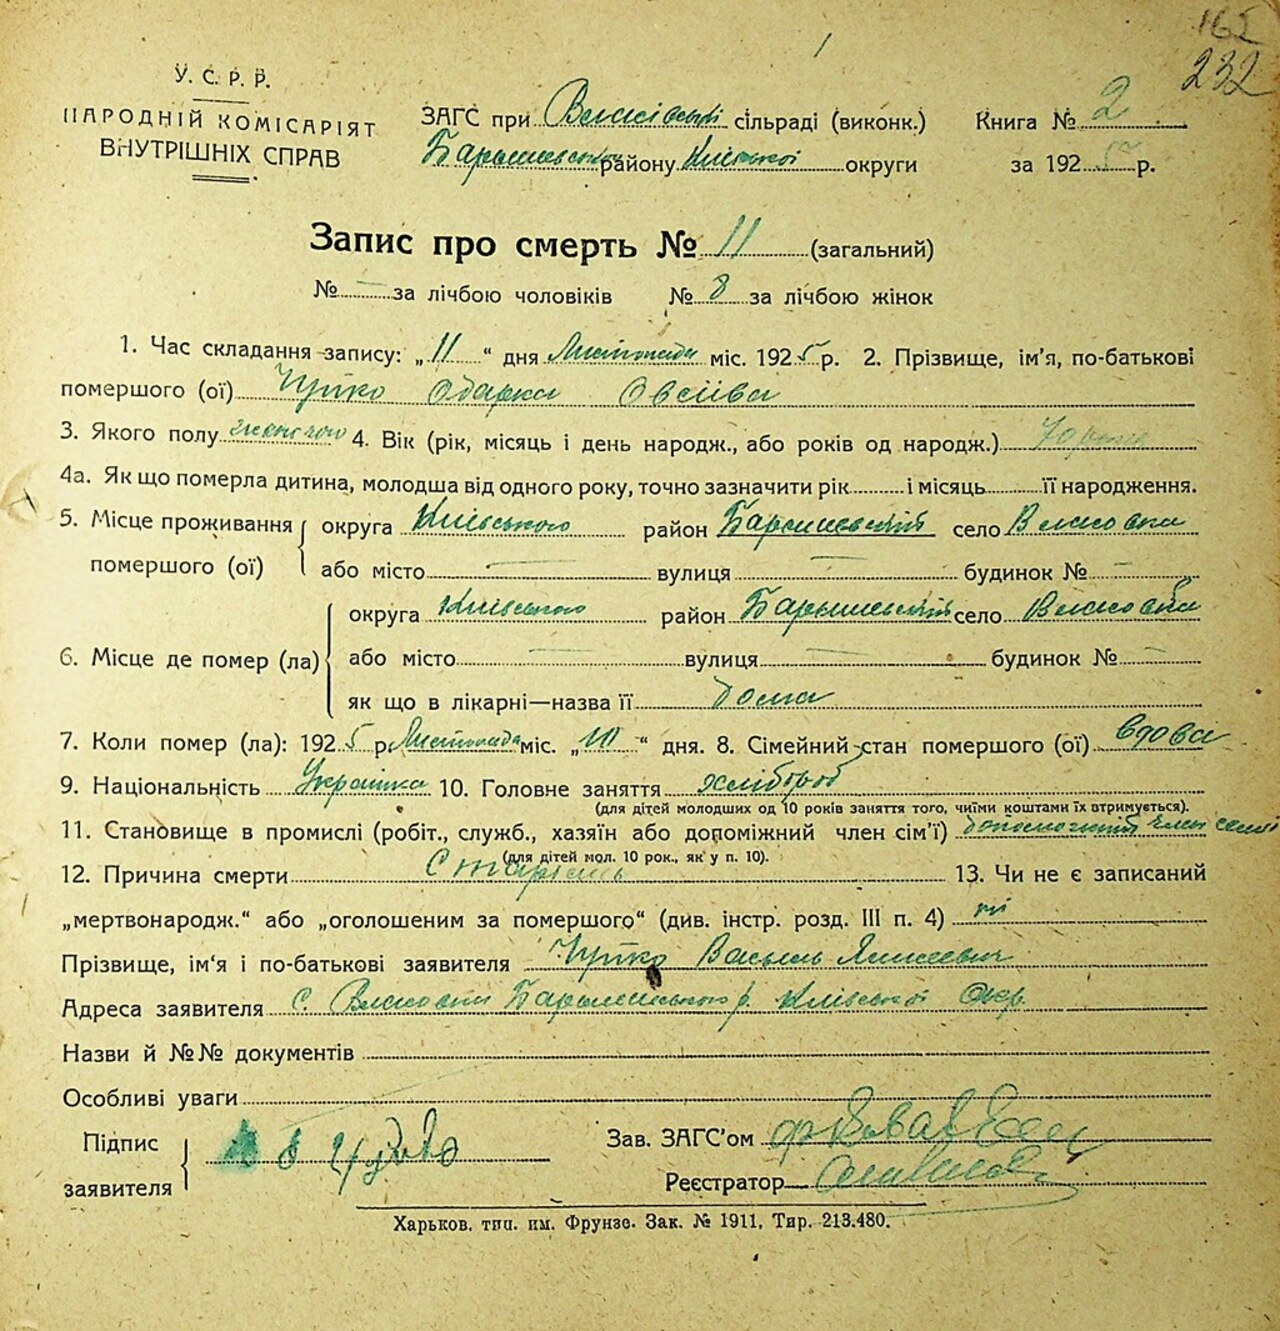 165
232
У. С. Р. Р.
НАРОДНІЙ КОМІСАРІЯТ
ВНУТРІШНІХ СПРАВ
ЗАГС при сільраді (виконк.) Книга № 2
району Київської округи за 1925 р.
Запис про смерть № 11 (загальний)
№ — за лічбою чоловіків № 8 за лічбою жінок
1. Час складання запису: „11“ дня Листопада міс. 1925 р. 2. Прізвище, ім'я, по-батькові
помершого (ої) Одарка Овсіїва
3. Якого полу 4. Вік (рік, місяць і день народж., або років од народж.)
4а. Як що померла дитина, молодша від одного року, точно зазначити рік і місяць її народження.
5. Місце проживання помершого (ої) округа Київського район Баришевський село
або місто — вулиця — будинок № —
6. Місце де помер (ла) округа Київського район Баришевський село
або місто — вулиця — будинок № —
як що в лікарні—назва її дома
7. Коли помер (ла): 1925 р. Листопада міс. „10“ дня. 8. Сімейний стан помершого (ої) вдова
9. Національність Українка 10. Головне заняття хлібороб
(для дітей молодших од 10 років заняття того, чиїми коштами їх втримується).
11. Становище в промислі (робіт., служб., хазяїн або допоміжний член сім'ї) допоможний член семї
(для дітей мол. 10 рок., як у п. 10).
12. Причина смерти Старість 13. Чи не є записаний
„мертвонародж.“ або „оголошеним за помершого“ (див. інстр. розд. III п. 4) ні
Прізвище, ім'я і по-батькові заявителя Василь
Адреса заявителя с. р. Київської Окр.
Назви й №№ документів
Особливі уваги
Підпис заявителя
Зав. ЗАГС'ом
Реєстратор
Харьков. тип. им. Фрунзе. Зак. № 1911, Тир. 213.480.